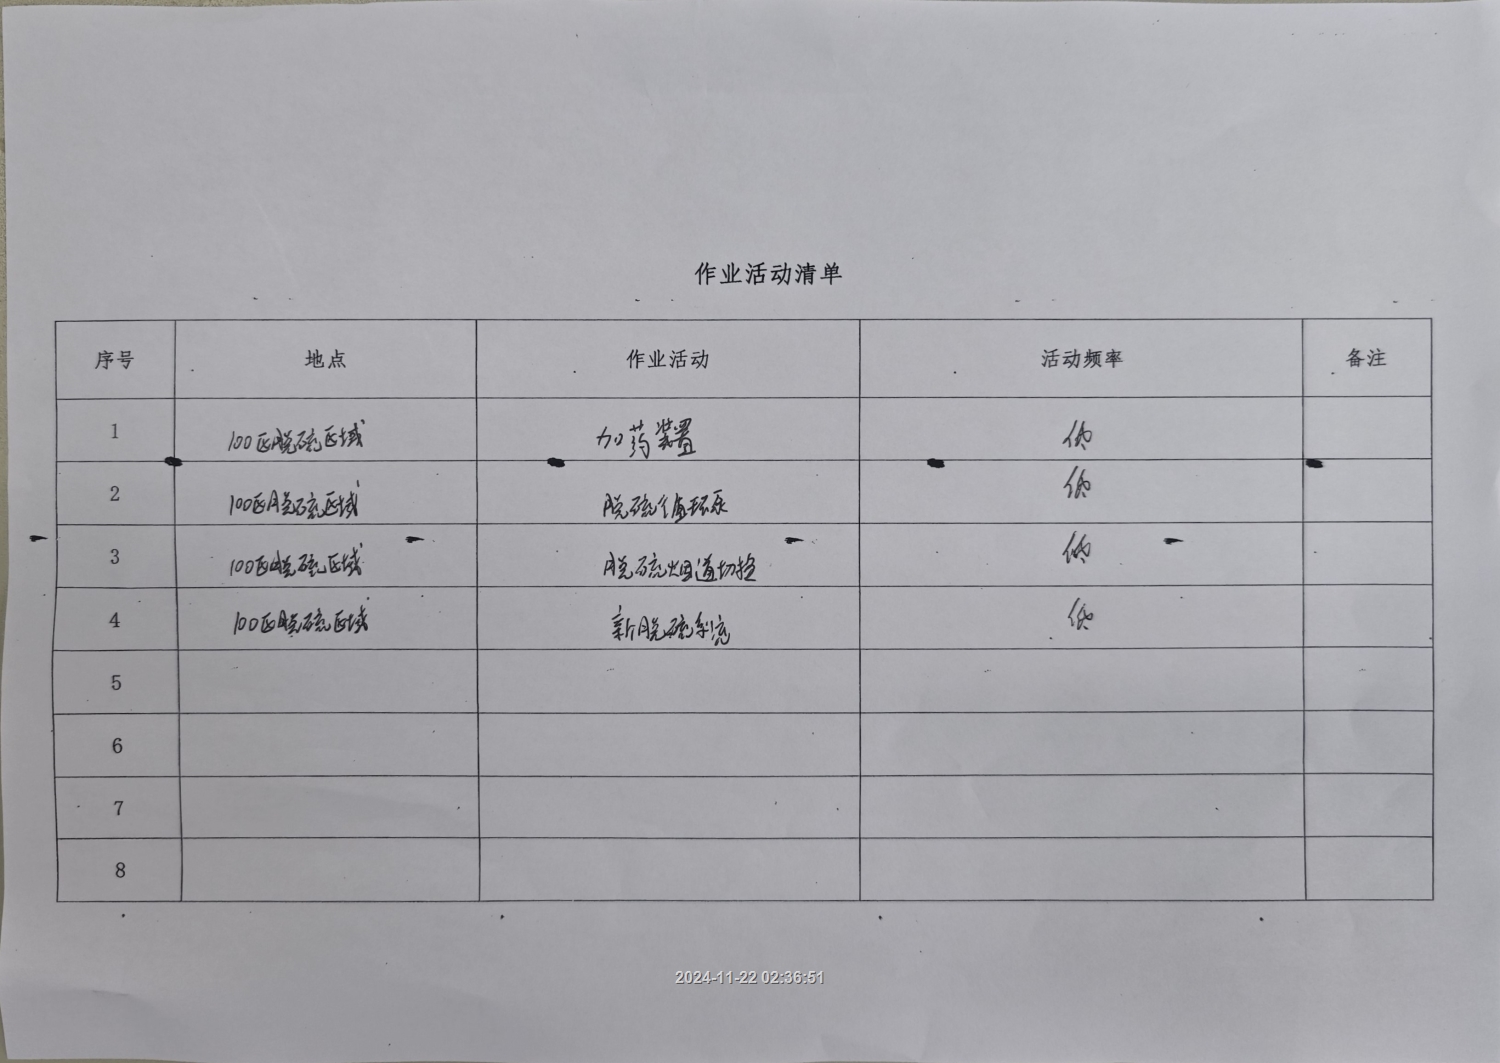 作业活动清单
序号 地点 作业活动 活动频率 备注
1 100区脱硫区域 加药装置 低
2 100区脱硫区域 脱硫循环泵 低
3 100区脱硫区域 脱硫烟道切换 低
4 100区脱硫区域 新脱硫系统 低
5
6
7
8
2024-11-22 02:36:51